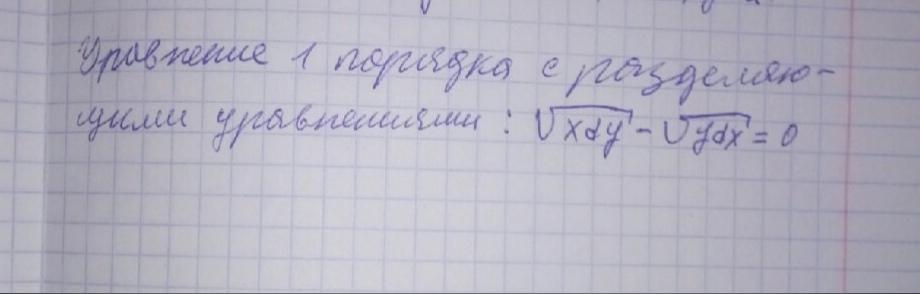 Уравнение 1 порядка с разделяю-
щими уравнениями : √xdy - √ydx = 0